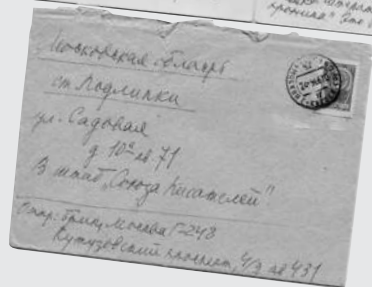 Московская область
ст. Подлипки
ул. Садовая
д 10ª кв. 71
В штаб „Союза Писателей"
Отпр: Брик, Москва Г-248
Кутузовский проспект, 4/2 кв 431